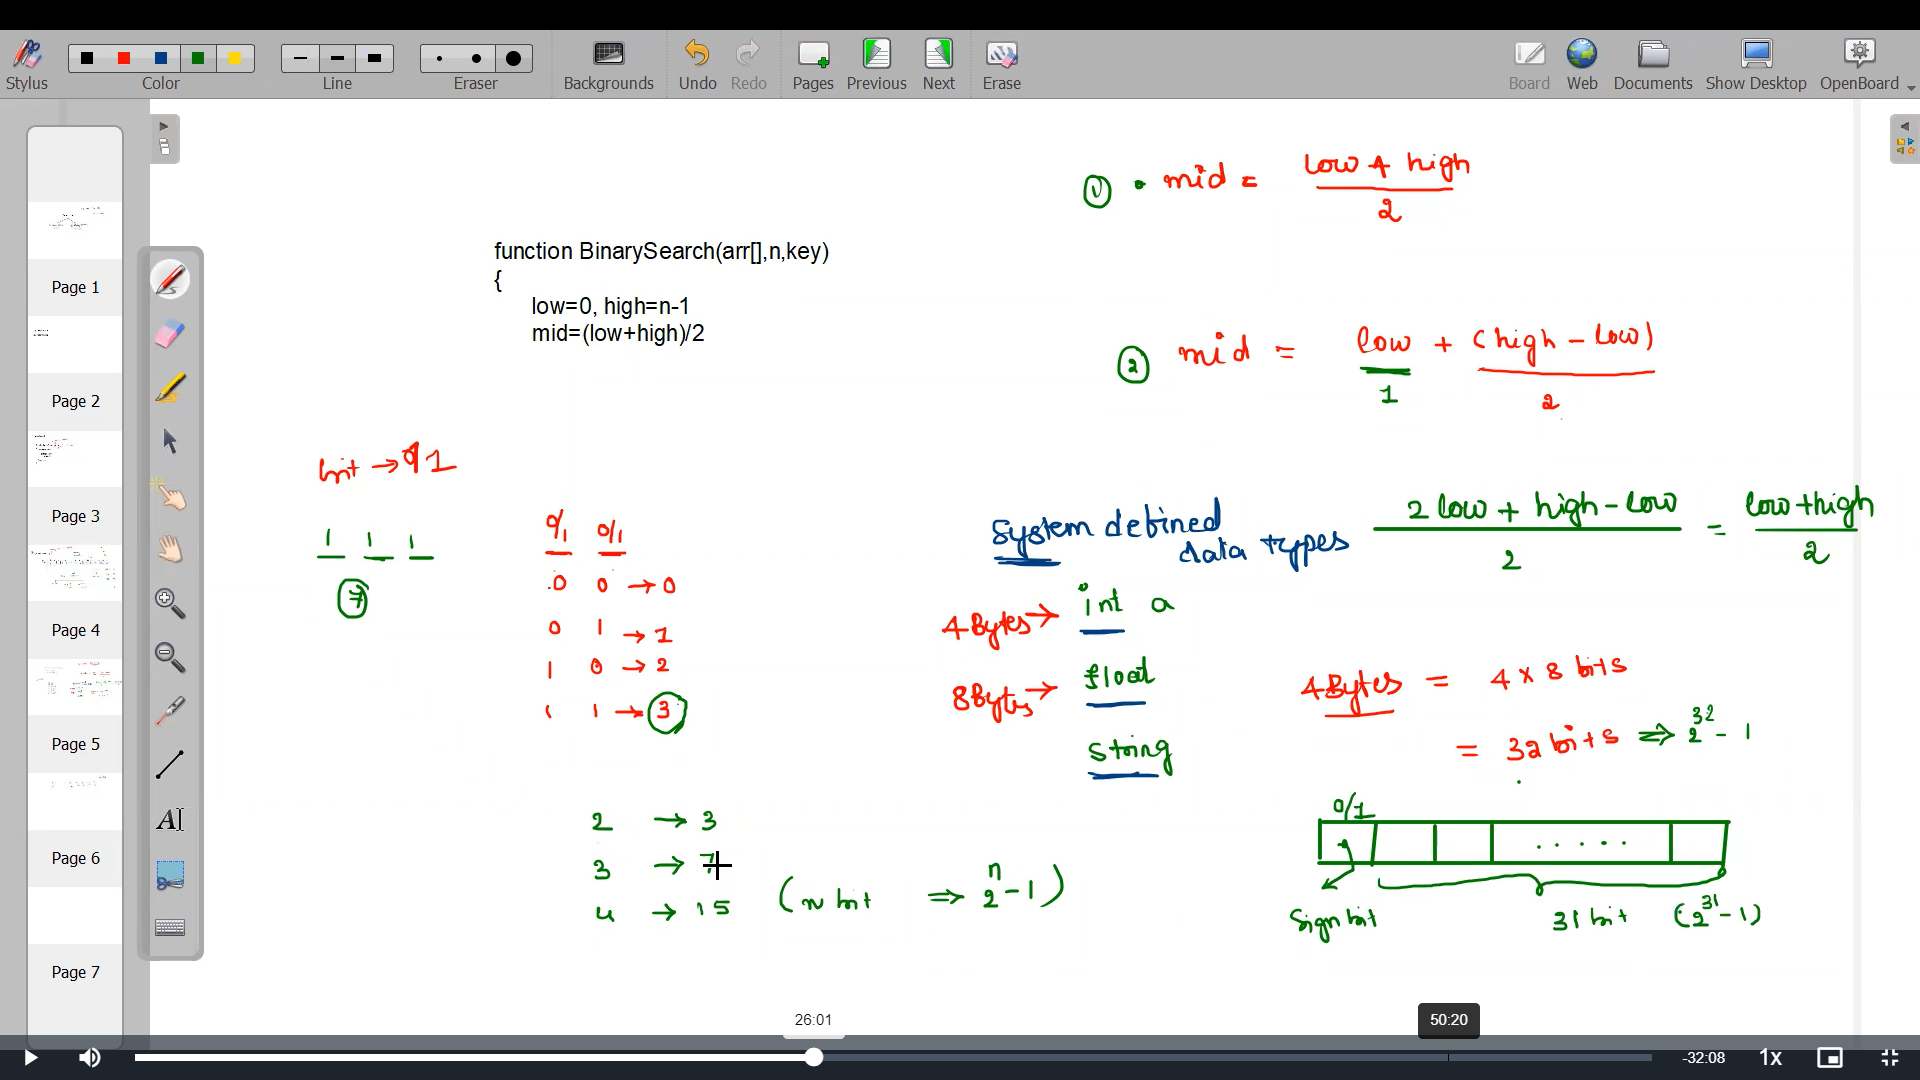 Stylus
Color
Line
Eraser
Backgrounds
Undo
Redo
Pages
Previous
Next
Erase
Board
Web
Documents
Show Desktop
OpenBoard
Page 1
Page 2
Page 3
Page 4
Page 5
Page 6
Page 7
function BinarySearch(arr[],n,key)
{
low=0, high=n-1
mid=(low+high)/2
① • mid = low + high
2
② mid = low + (high - low)
1 2
bit → 0/1
1 1 1
7
0/1 0/1
0 0 → 0
0 1 → 1
1 0 → 2
1 1 → 3
2 → 3
3 → 7
4 → 15
(n bit ⇒ 2^n - 1)
System defined
data types
4Bytes → int a
8Bytes → float
string
2 low + high - low = low + high
2 2
4Bytes = 4 x 8 bits
= 32 bits ⇒ 2^32 - 1
0/1
. . . . .
Sign bit
31 bit (2^31 - 1)
AI
26:01
50:20
-32:08
1x